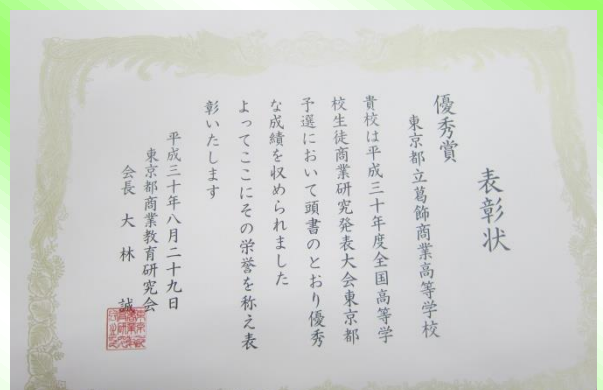 表彰状
優秀賞
東京都立葛飾商業高等学校
貴校は平成三十年度全国高等学
校生徒商業研究発表大会東京都
予選において頭書のとおり優秀
な成績を収められました
よってここにその栄誉を称え表
彰いたします
平成三十年八月二十九日
東京都商業教育研究会
会長 大林 誠